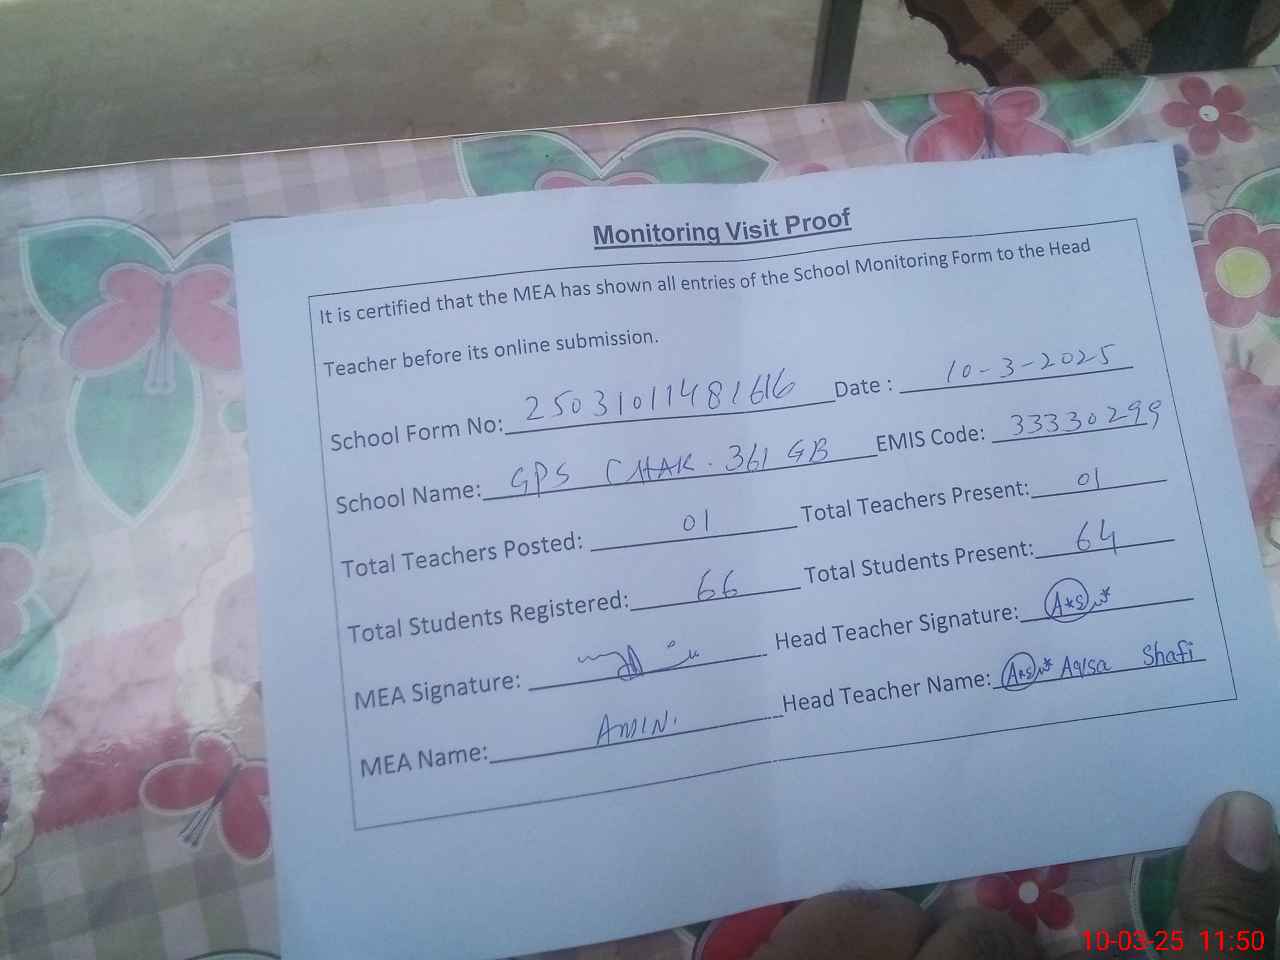 Monitoring Visit Proof
It is certified that the MEA has shown all entries of the School Monitoring Form to the Head
Teacher before its online submission.
School Form No: 25031011481616 Date : 10-3-2025
School Name: GPS CHAK. 361 GB EMIS Code: 33330299
Total Teachers Posted: 01 Total Teachers Present: 01
Total Students Registered: 66 Total Students Present: 64
MEA Signature: Head Teacher Signature:
MEA Name: AMIN. Head Teacher Name: Aqsa Shafi
10-03-25 11:50